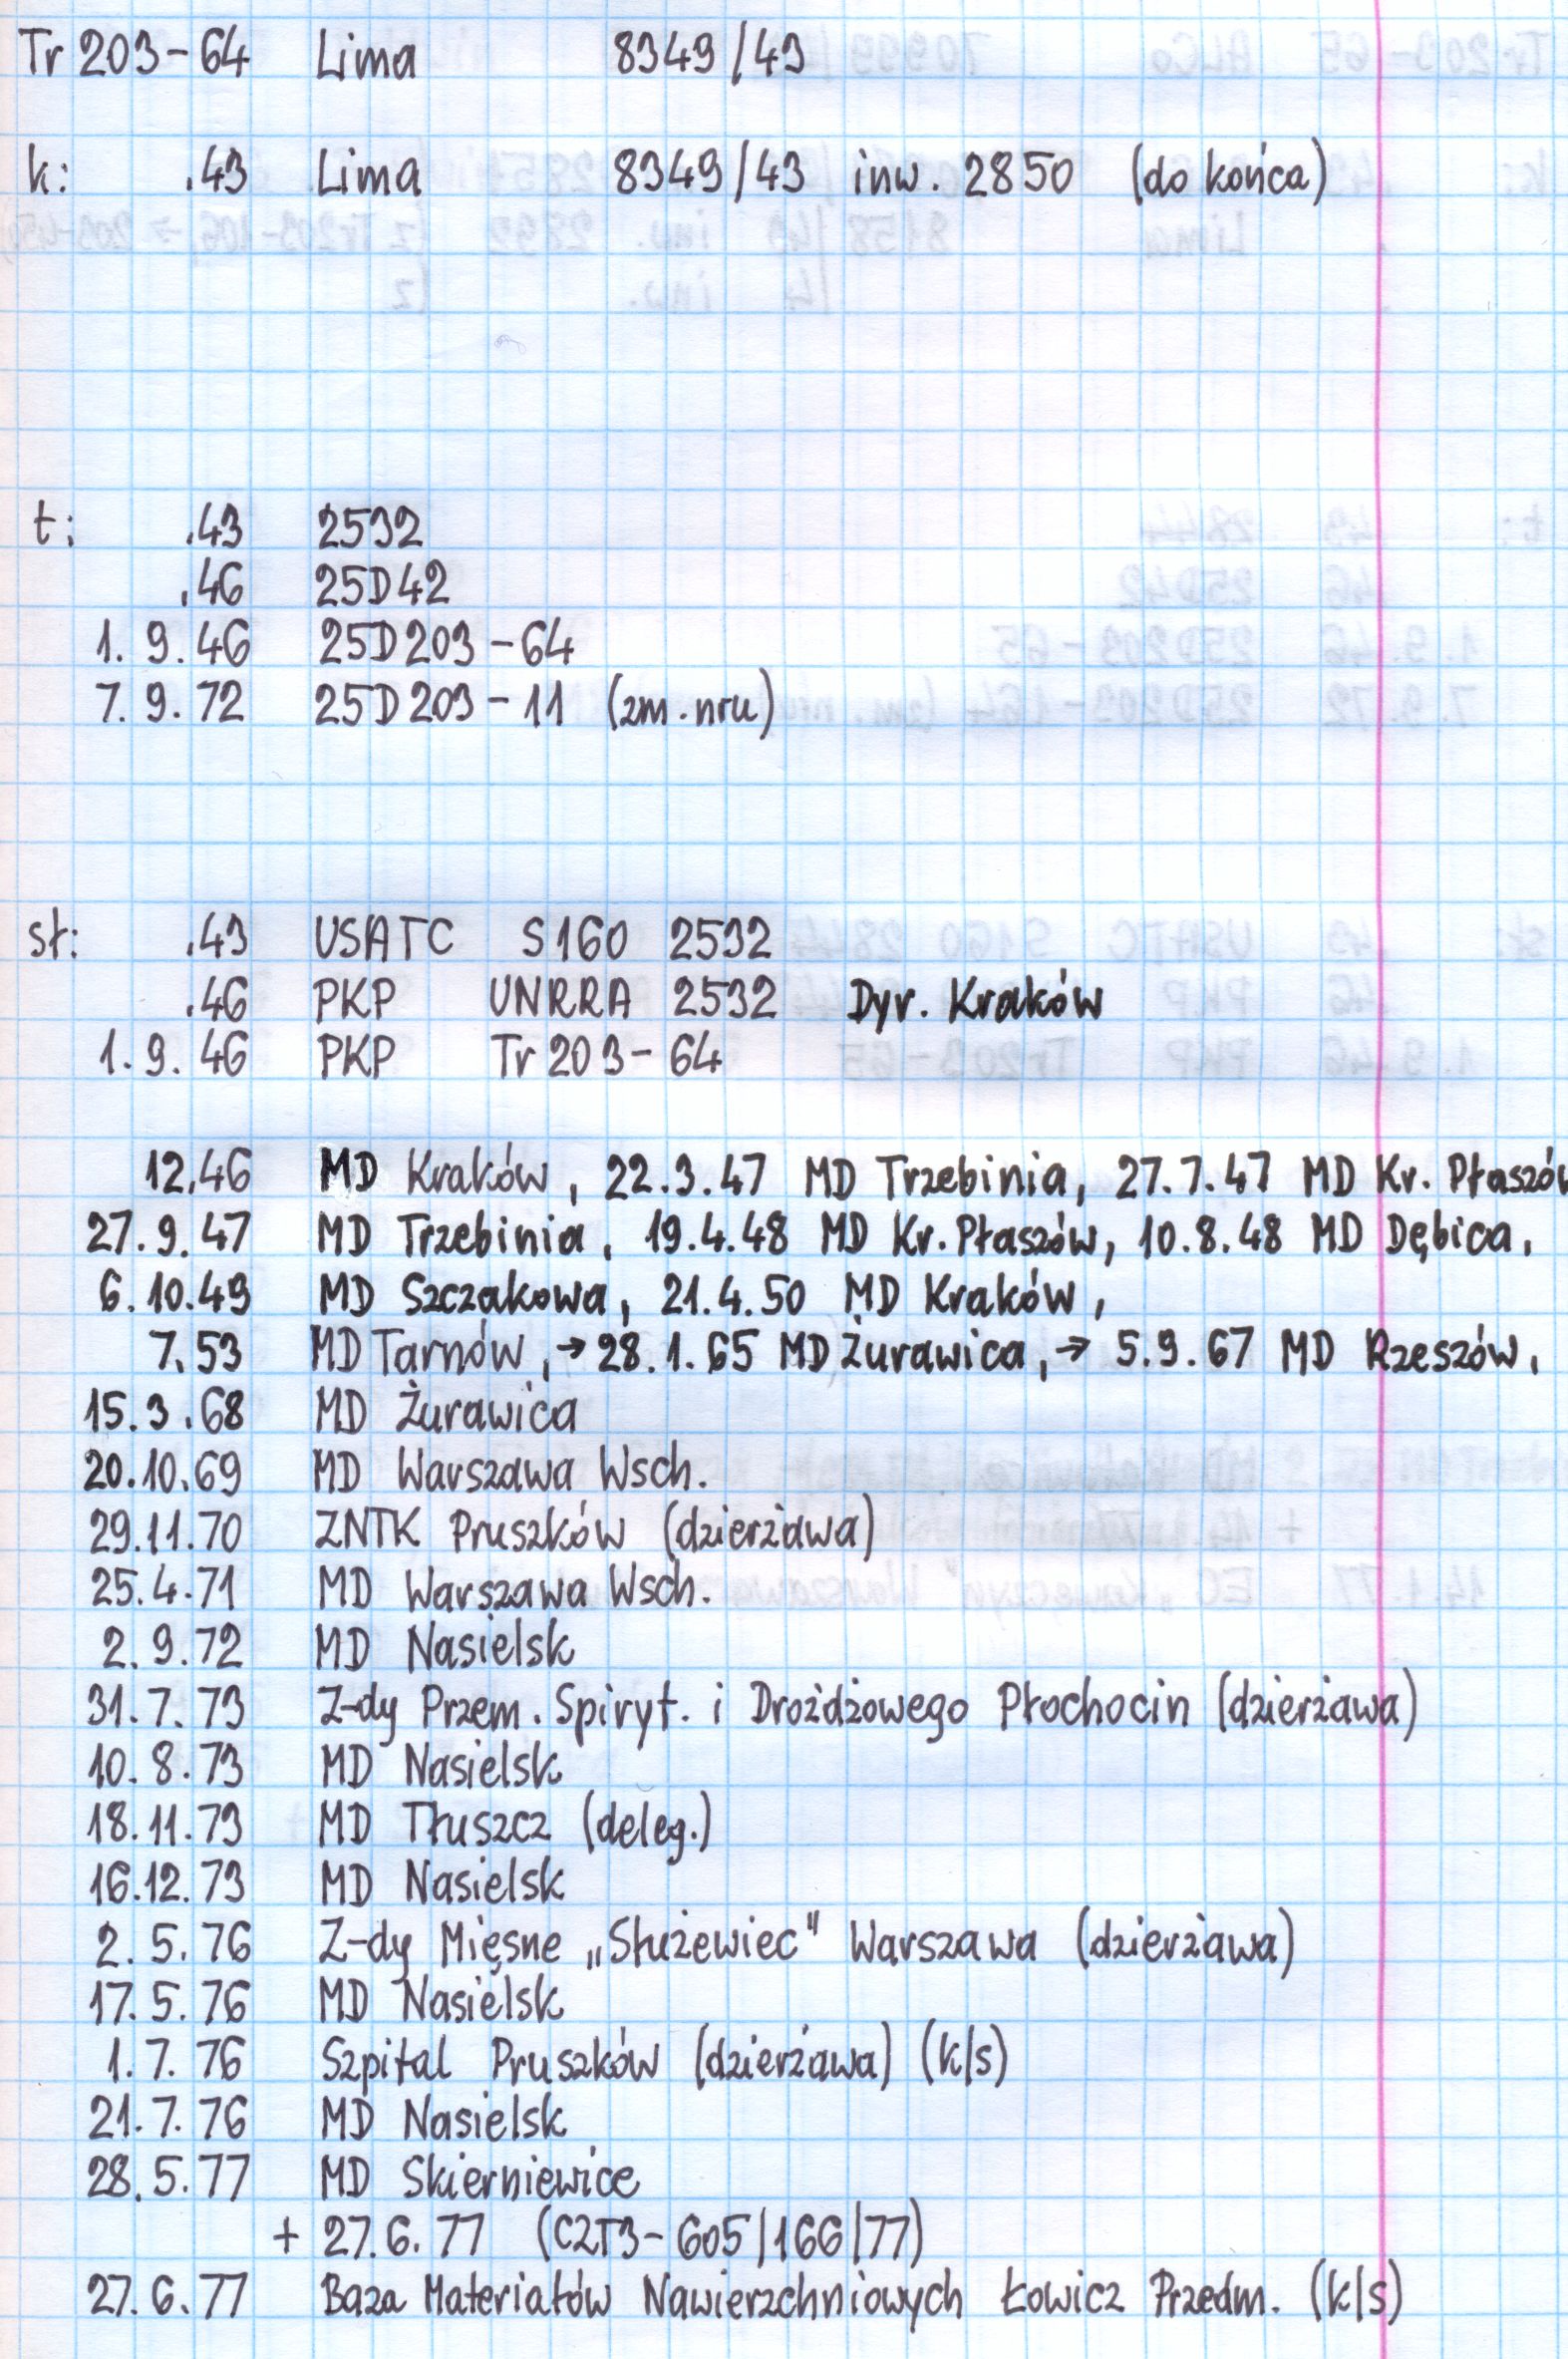 Tr 203-64 Lima 8349/43
k: .43 Lima 8349/43 inw. 2850 (do końca)
t: .43 2532
.46 25D42
1. 9. 46 25D203-64
7. 9. 72 25D203-11 (zm. nru)
sł: .43 USATC S160 2532
.46 PKP UNRRA 2532 Dyr. Kraków
1. 9. 46 PKP Tr 203-64
12.46 MD Kraków, 22.3.47 MD Trzebinia, 27.7.47 MD Kr. Płaszów
27. 9. 47 MD Trzebinia, 19.4.48 MD Kr. Płaszów, 10.8.48 MD Dębica,
6. 10.49 MD Szczakowa, 21.4.50 MD Kraków,
7.53 MD Tarnów, → 28.1.65 MD Żurawica, → 5.9.67 MD Rzeszów,
15.3.68 MD Żurawica
20.10.69 MD Warszawa Wsch.
29.11.70 ZNTK Pruszków (dzierżawa)
25.4.71 MD Warszawa Wsch.
2. 9. 72 MD Nasielsk
31. 7. 73 Z-dy Przem. Spiryt. i Drożdżowego Płochocin (dzierżawa)
10. 8. 73 MD Nasielsk
18. 11. 73 MD Tłuszcz (deleg.)
16.12. 73 MD Nasielsk
2. 5. 76 Z-dy Mięsne „Służewiec" Warszawa (dzierżawa)
17. 5. 76 MD Nasielsk
1. 7. 76 Szpital Pruszków (dzierżawa) (k/s)
21. 7. 76 MD Nasielsk
28. 5. 77 MD Skierniewice
+ 27. 6. 77 (CZT3-605/166/77)
27. 6. 77 Baza Materiałów Nawierzchniowych Łowicz Przedm. (k/s)